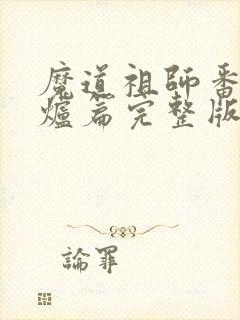 魔道祖師番
爐篇完整版
論罪